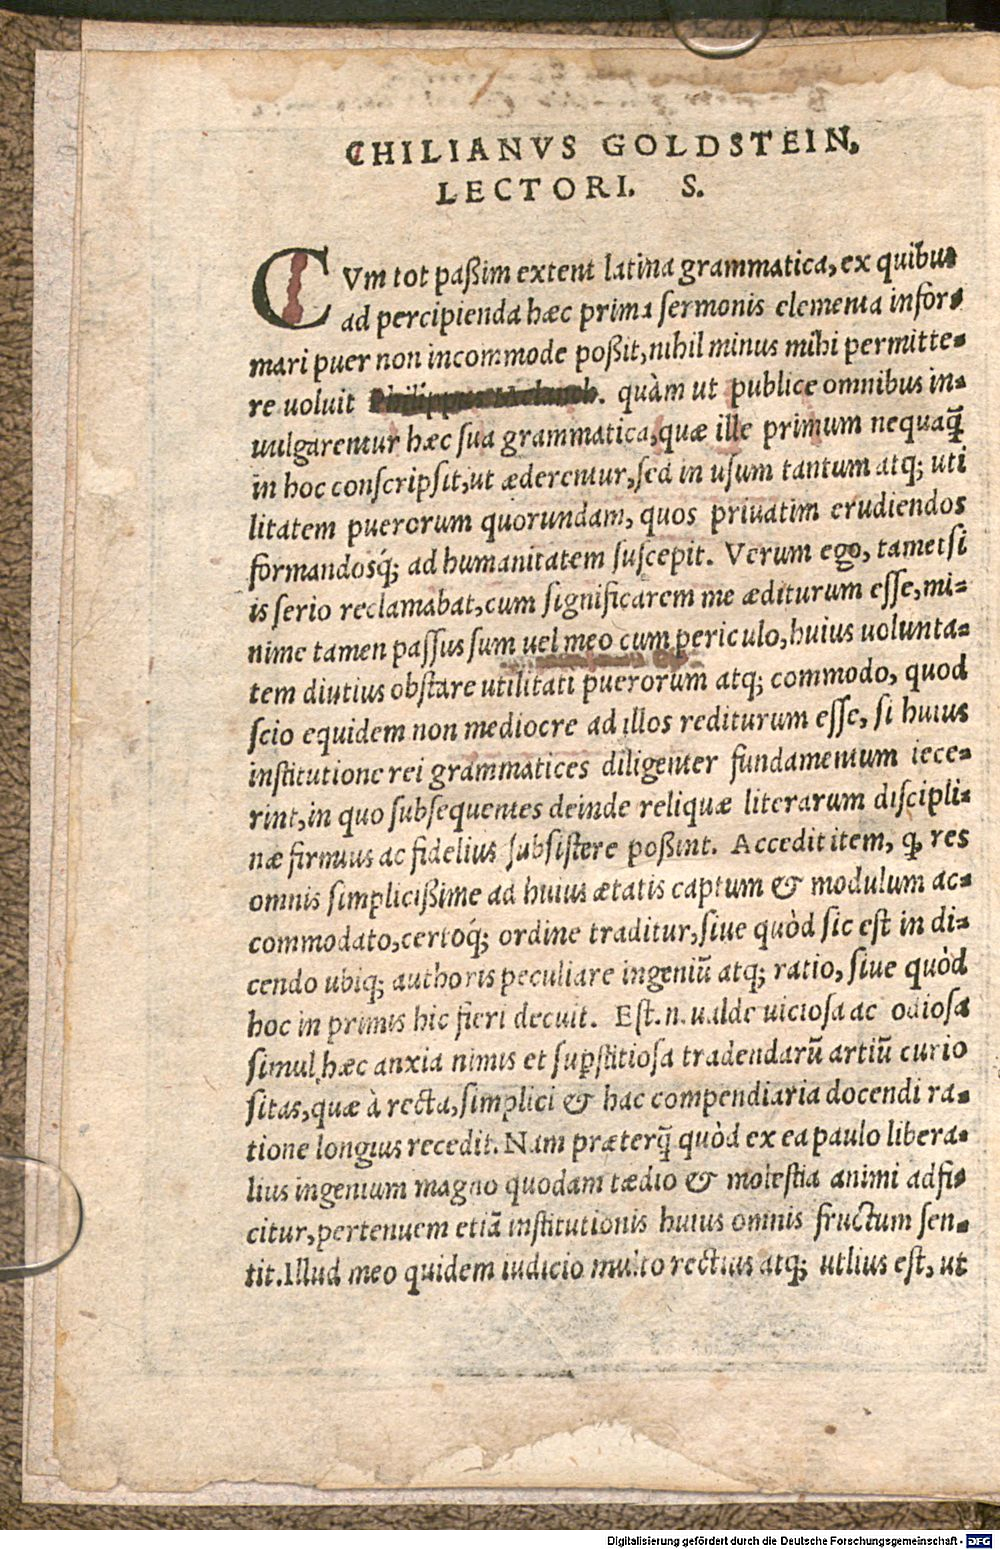 CHILIANVS GOLDSTEIN,
LECTORI. S.
CVm tot paßim extent latina grammatica, ex quibus
ad percipienda hæc prima sermonis elementa infor-
mari puer non incommode poßit, nihil minus mihi permitte-
re uoluit Philippus Melanch. quàm ut publice omnibus in-
uulgarentur hæc sua grammatica, quæ ille primum nequaq̃
in hoc conscripsit, ut æderentur, sed in usum tantum atq; uti
litatem puerorum quorundam, quos priuatim erudiendos
formandosq́; ad humanitatem suscepit. Verum ego, tametsi
is serio reclamabat, cum significarem me æditurum esse, mi-
nime tamen passus sum uel meo cum periculo, huius uolunta-
tem diutius obstare utilitati puerorum atq; commodo, quod
scio equidem non mediocre ad illos rediturum esse, si huius
institutione rei grammatices diligenter fundamentum iece-
rint, in quo subsequentes deinde reliquæ literarum discipli-
næ firmius ac fidelius subsistere poßint. Accedit item, ꝙ res
omnis simplicißime ad huius ætatis captum & modulum ac-
commodato, certoq́; ordine traditur, siue quòd sic est in di-
cendo ubiq; authoris peculiare ingeniũ atq; ratio, siue quòd
hoc in primis hic fieri decuit. Est .n. ualde uiciosa ac odiosa
simul hæc anxia nimis et suꝑstitiosa tradendarũ artiũ curio
sitas, quæ à recta, simplici & hac compendiaria docendi ra-
tione longius recedit. Nam præterq̃ quòd ex ea paulo libera-
lius ingenium magno quodam tædio & molestia animi adfi-
citur, pertenuem etiã institutionis huius omnis fructum sen-
tit. Illud meo quidem iudicio multo rectius atq; utlius est, ut
Digitalisierung gefördert durch die Deutsche Forschungsgemeinschaft - DFG